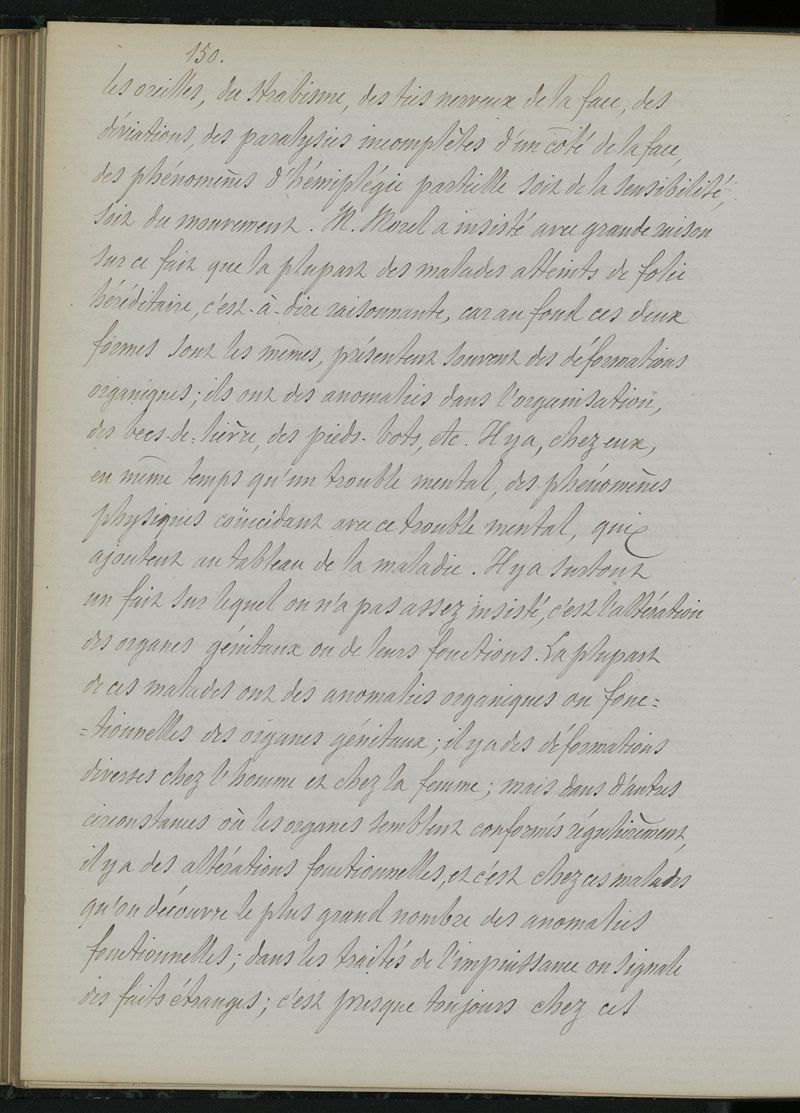 150.
les oreilles, du strabisme, des tics nerveux de la face, des
déviations, des paralysies incomplètes d'un côté de la face,
des phénomènes d'hémiplégie partielle soit de la sensibilité,
soit du mouvement. M. Morel a insisté avec grande raison
sur ce fait que la plupart des malades atteints de folie
héréditaire, c'est-à-dire raisonnante, car au fond ces deux
formes sont les mêmes, présentent souvent des déformations
organiques; ils ont des anomalies dans l'organisation,
des becs-de-lièvre, des pieds-bots, etc. Il y a, chez eux,
en même temps qu'un trouble mental, des phénomènes
physiques coïncidant avec ce trouble mental, qui
ajoutent au tableau de la maladie. Il y a surtout
un fait sur lequel on n'a pas assez insisté, c'est l'altération
des organes génitaux ou de leurs fonctions. La plupart
de ces malades ont des anomalies organiques ou fonc=
=tionnelles des organes génitaux; il y a des déformations
diverses chez l'homme et chez la femme; mais dans d'autres
circonstances où les organes semblent conformés régulièrement,
il y a des altérations fonctionnelles, et c'est chez ces malades
qu'on découvre le plus grand nombre des anomalies
fonctionnelles; dans les traités de l'impuissance on signale
des faits étranges; c'est presque toujours chez ces